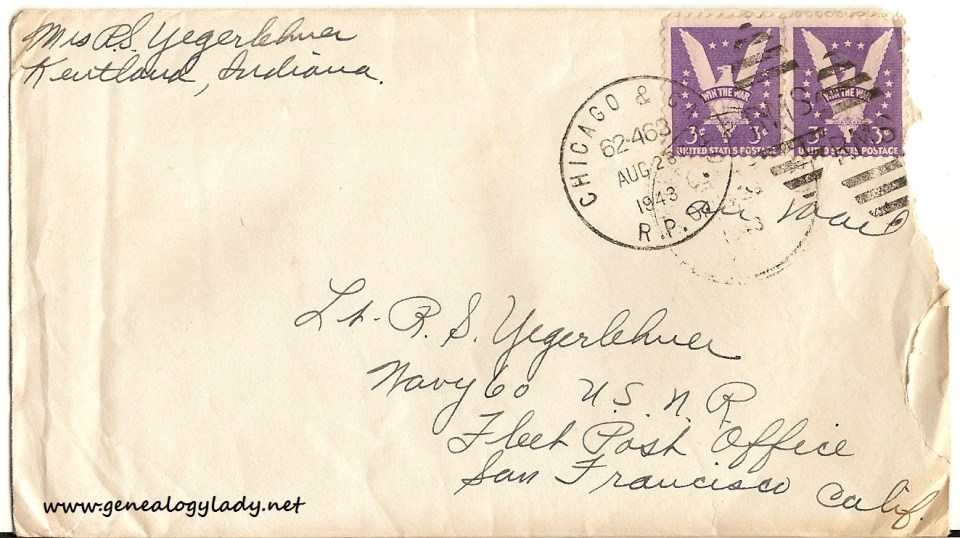 Mrs R.S. Yegerlehner
Kentland, Indiana.
WIN THE WAR
3¢ 3¢
UNITED STATES POSTAGE
WIN THE WAR
3¢ 3¢
UNITED STATES POSTAGE
CHICAGO &
62-463
AUG 26
1943
R.P.O.
1943
Air Mail
Lt. R. S. Yegerlehner
Navy 60 U.S.N.R,
Fleet Post Office
San Francisco Calif.
www.genealogylady.net